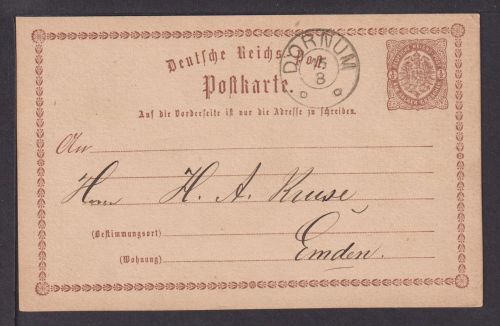 Deutsche Reichs
Postkarte.
DORNUM
15
8
Auf die Vorderseite ist nur die Adresse zu schreiben.
An
Herrn H. A. Kruse,
(Bestimmungsort)
Emden.
(Wohnung)